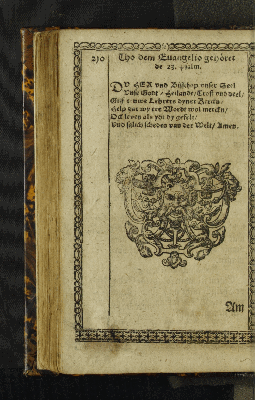 230 Tho dem Euangelio gehöret
de 23. Psalm.
DV HER vnd Bisschop vnser Seel
Vnse Godt / Heilandt / Trost vnd deel /
Giff vns Lehrers dyner
Help dat wy ere Wordt wol mercken /
Ock leuen als ydt dy gefelt /
Vnd salich scheden van der Welt / Amen.
Am